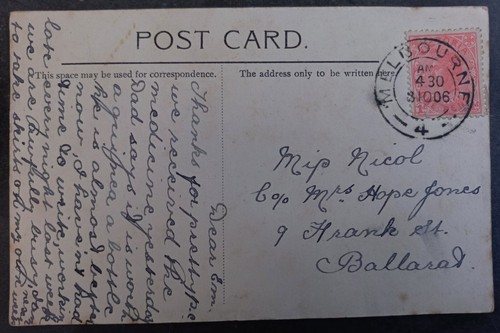 POST CARD.
This space may be used for correspondence.
The address only to be written here.
MELBOURNE
AM
4 30
3 10 06
4
Miss Nicol
C/o Mrs Hope Jones
9 Frank St.
Ballarat.
Dear Em.
Thanks for pretty P.C
we received the
medicine yesterday
Dad says it is worth
a guinea a bottle
He is almost better
now, I haven't had
time to write working
late every night last week
we are awfully busy,
to take skirts of my own